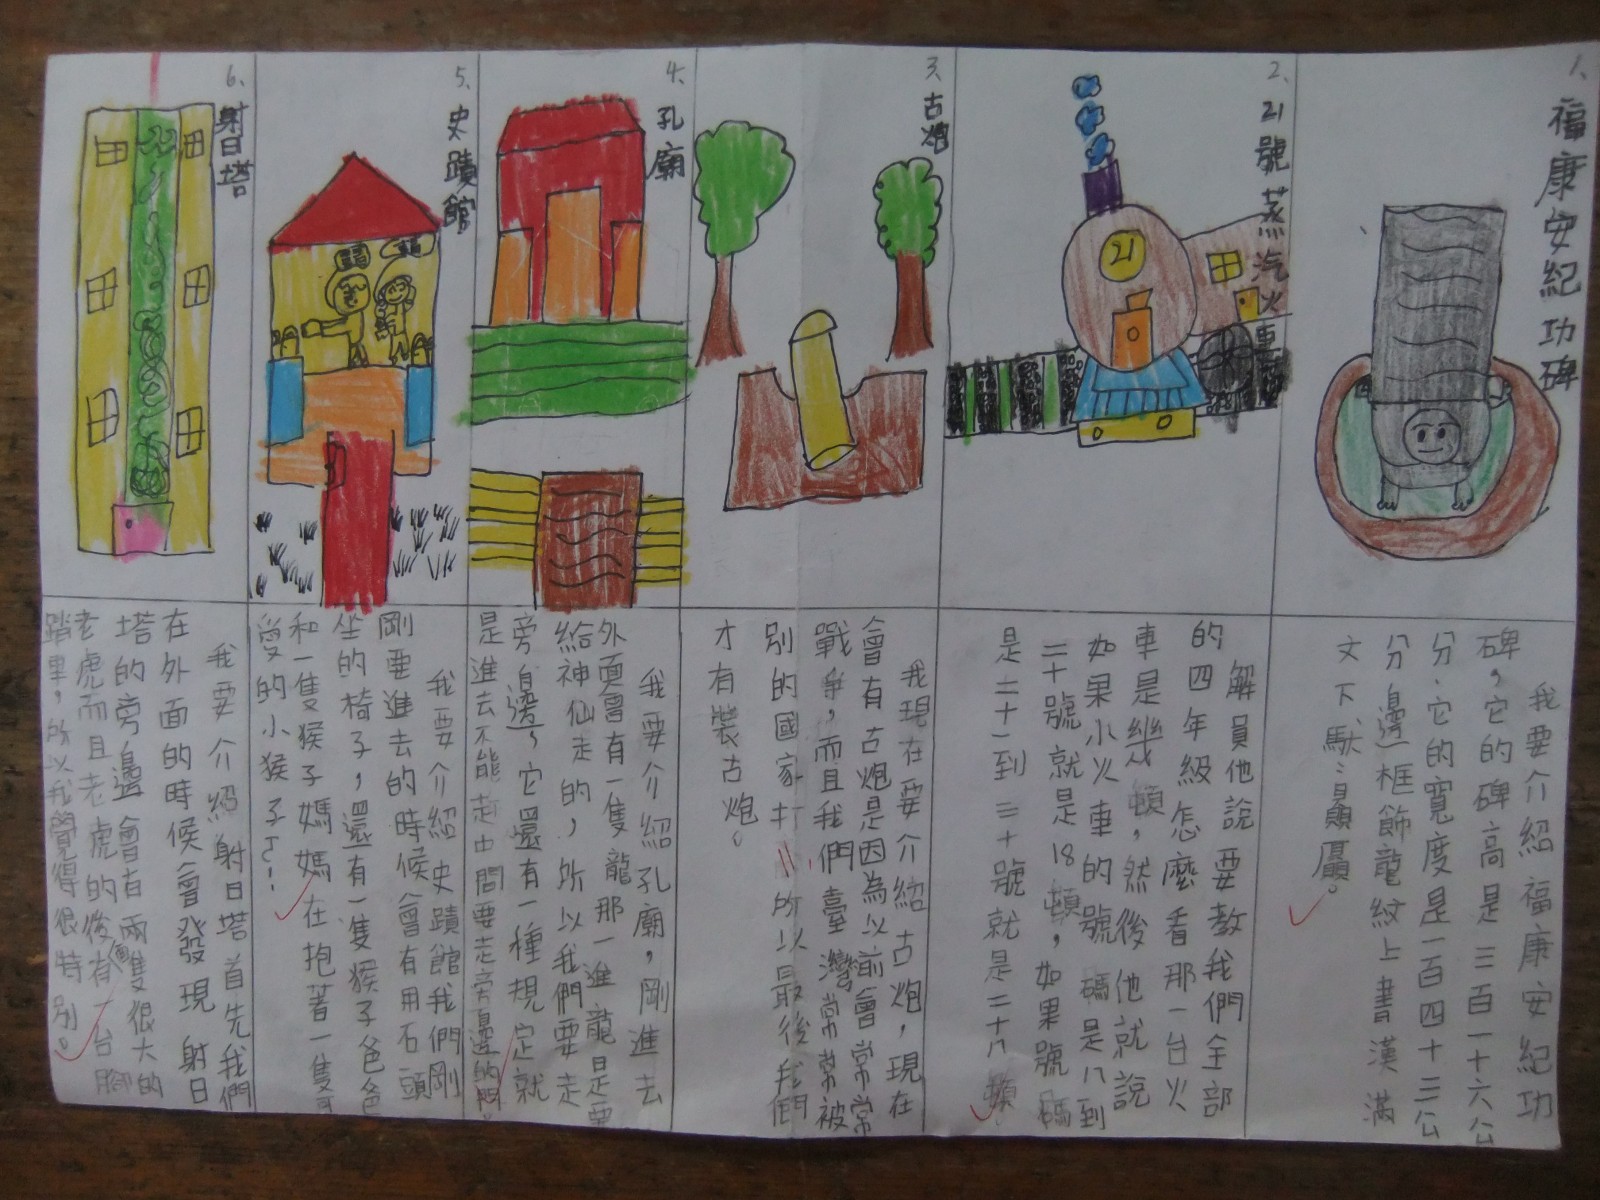 1、福康安紀功碑
我要介紹福康安紀功
碑，它的碑高是三百一十六公
分、它的寬度是一百四十三公
分、邊框飾龍紋上書漢滿
文下馱
2、21號蒸汽火車
21
解員他說要教我們全部
的四年級怎麼看那一台火
車是幾頓，然後他就說
如果小火車的號碼是八到
二十號就是18頓，如果號碼
是二十一到三十號就是二十八頓
3、古炮
我現在要介紹古炮，現在
會有古炮是因為以前會常常
戰爭，而且我們臺灣常常被
別的國家打，所以最後我們
才有裝古炮。
4、孔廟
我要介紹孔廟，剛進去
外面會有一隻龍那一進龍是要
給神仙走的，所以我們要走
旁邊，它還有一種規定就
是進去不能走中間要走旁邊的門。
5、史蹟館
我要介紹史蹟館我們剛
剛要進去的時候會有用石頭
坐的椅子，還有一隻猴子爸爸
和一隻猴子媽媽在抱著一隻可
愛的小猴子！
6、射日塔
我要介紹射日塔首先我們
在外面的時候會發現射日
塔的旁邊會有兩隻很大的
老虎而且老虎的後面會有一台腳
踏車，所以我覺得很特別。